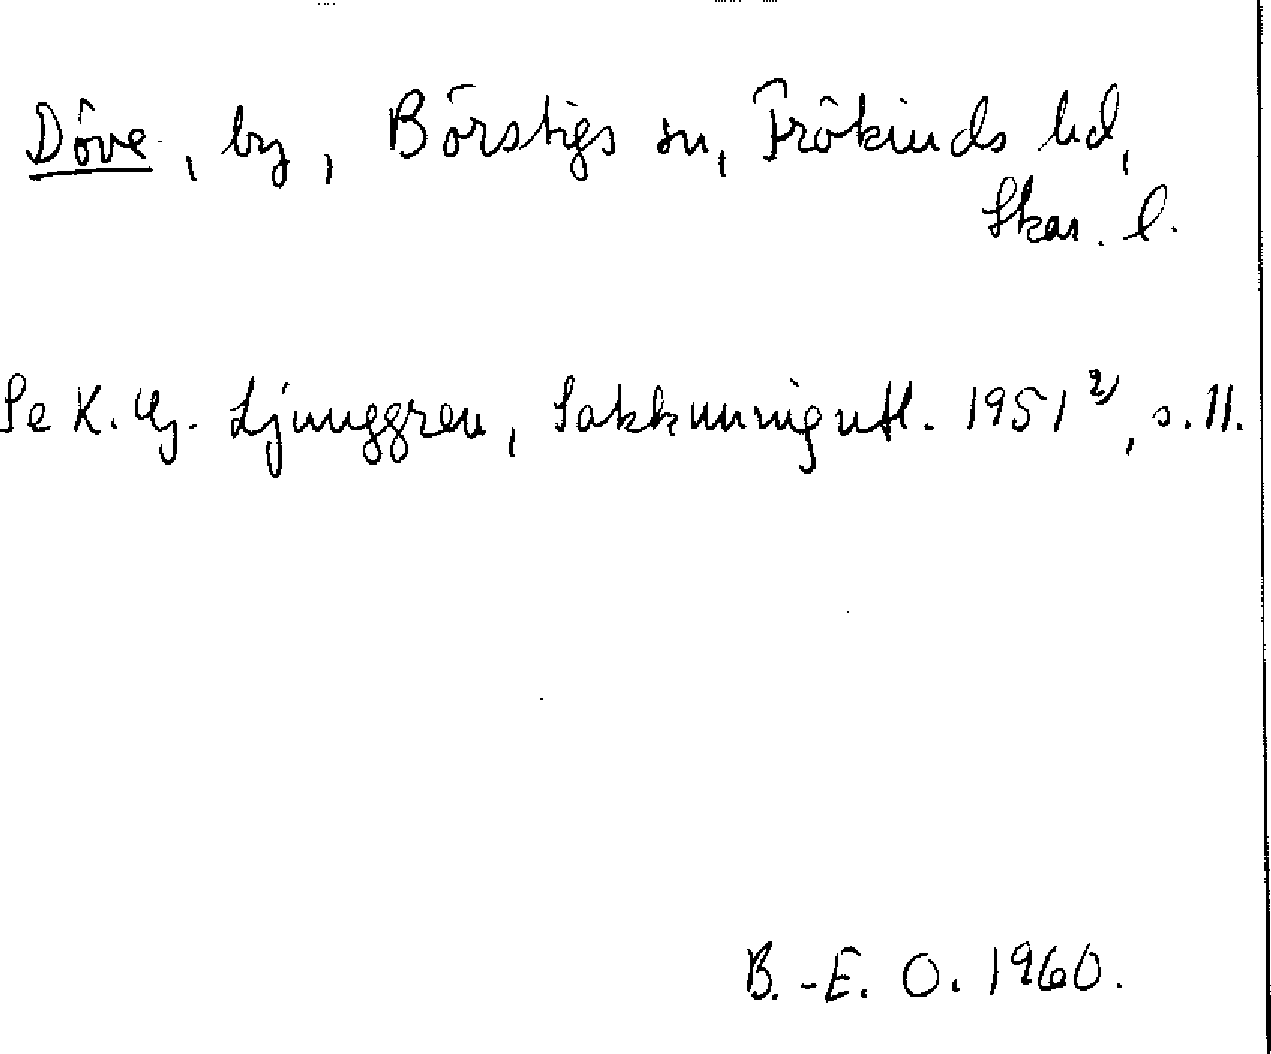 Döve, by, Börstigs sn, Frökinds hd,
Skar. l.
Se K. Gj. Ljunggren, Sakkunnigutl. 1951 2), s. 11.
B.-E. O. 1960.